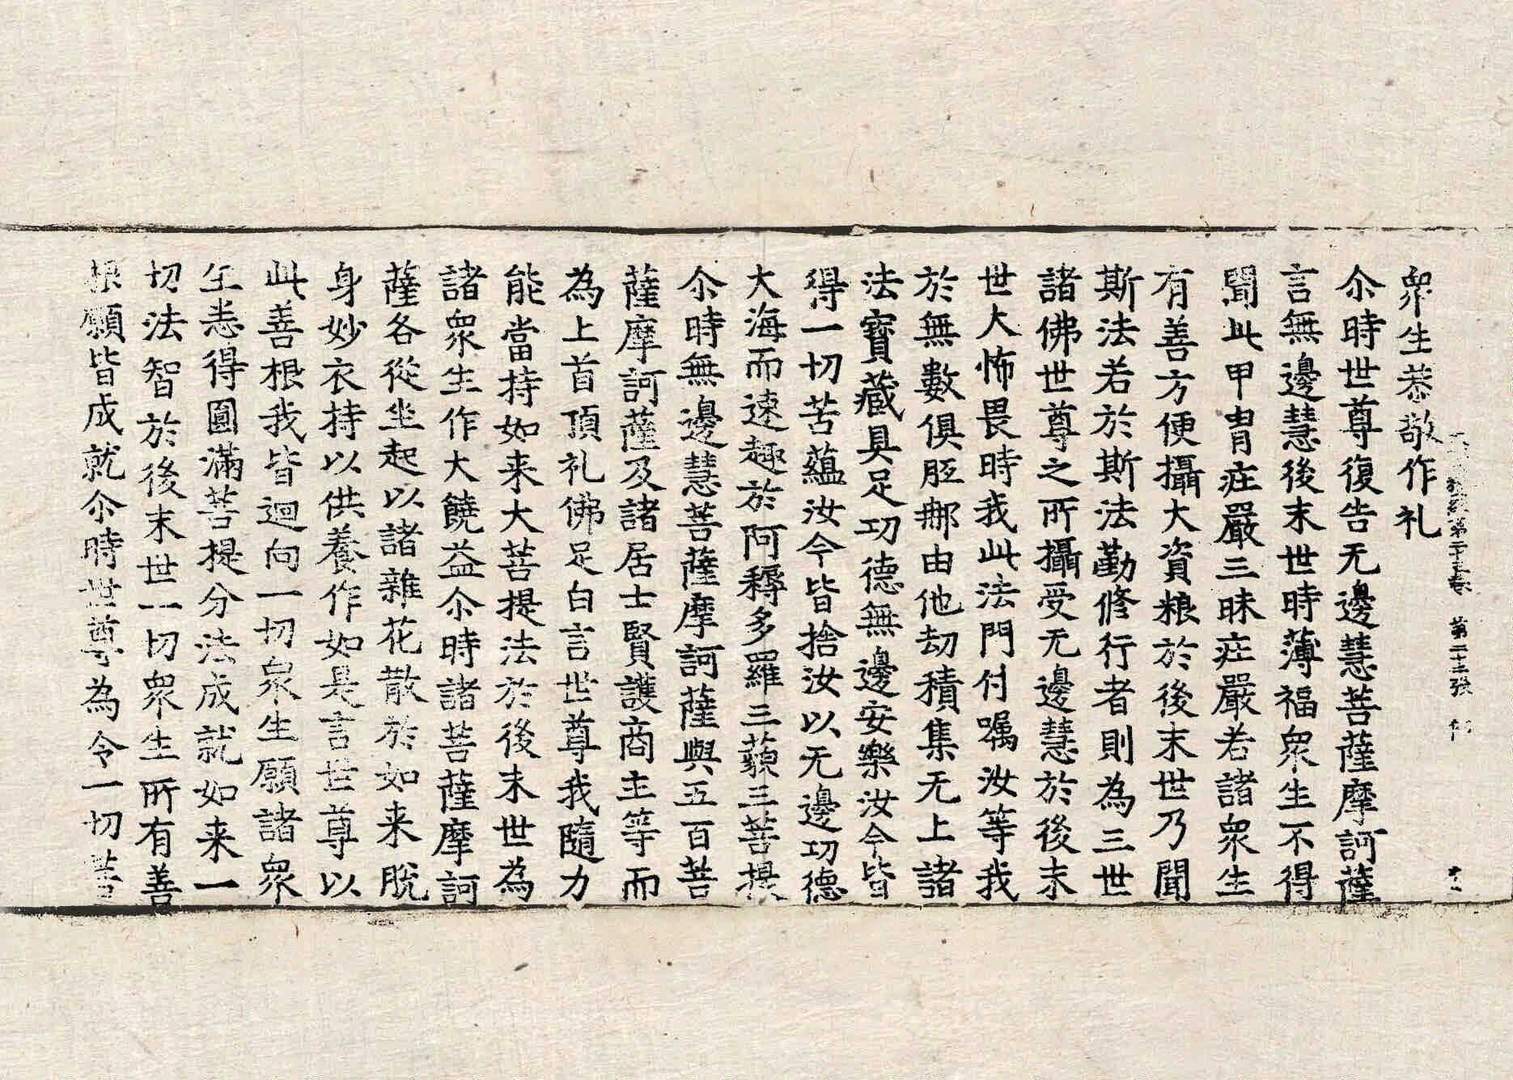 衆生恭敬作礼
经第二十五卷 第二十三張
尒時世尊復告无邊慧菩薩摩訶薩
言無邊慧後末世時薄福衆生不得
聞此甲冑庄嚴三昧庄嚴若諸衆生
有善方便攝大資粮於後末世乃聞
斯法若於斯法勤修行者則為三世
諸佛世尊之所攝受无邊慧於後末
世大怖畏時我此法門付囑汝等我
於無數俱胝那由他劫積集无上諸
法寳藏具足功德無邊安樂汝今皆
得一切苦蘊汝今皆捨汝以无邊功德
大海而速趣於阿耨多羅三藐三菩提
尒時無邊慧菩薩摩訶薩與五百菩
薩摩訶薩及諸居士賢護商主等而
為上首頂礼佛足白言世尊我隨力
能當持如来大菩提法於後末世為
諸衆生作大饒益尒時諸菩薩摩訶
薩各從坐起以諸雜花散於如来脫
身妙衣持以供養作如是言世尊以
此善根我皆迴向一切衆生願諸衆
生悉得圓滿菩提分法成就如来一
切法智於後末世一切衆生所有善
根願皆成就尒時世尊為令一切菩